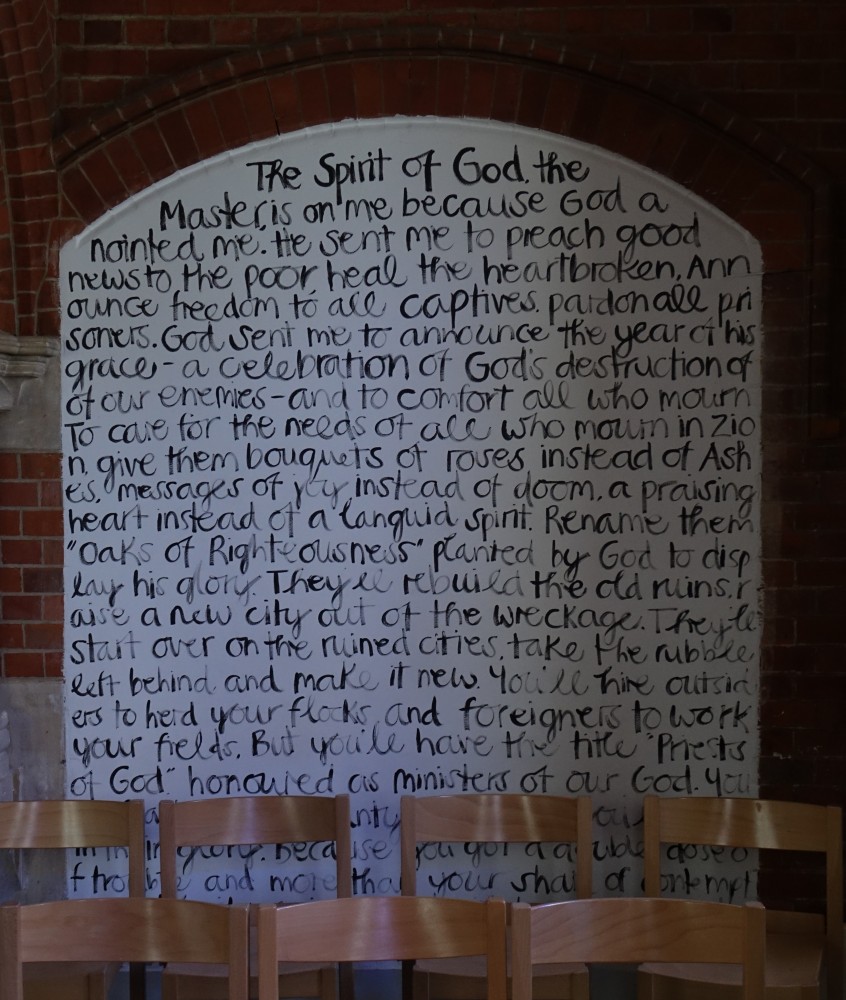 The Spirit of God, the
Master, is on me because God a
nointed me. He sent me to preach good
news to the poor, heal the heartbroken, Ann
ounce freedom to all captives, pardon all pri
soners. God sent me to announce the year of his
grace - a celebration of God's destruction of
of our enemies - and to comfort all who mourn
To care for the needs of all who mourn in Zio
n, give them bouquets of roses instead of Ash
es, messages of joy instead of doom, a praising
heart instead of a languid spirit. Rename them
"Oaks of Righteousness" planted by God to disp
lay his glory. They'll rebuild the old ruins, r
aise a new city out of the wreckage. They'll
start over on the ruined cities, take the rubble
left behind and make it new. You'll hire outsid
ers to herd your flocks and foreigners to work
your fields, But you'll have the title "Priests
of God" honoured as ministers of our God. You
glory. Because you got a double dose o
f trouble and more than your share of contempt